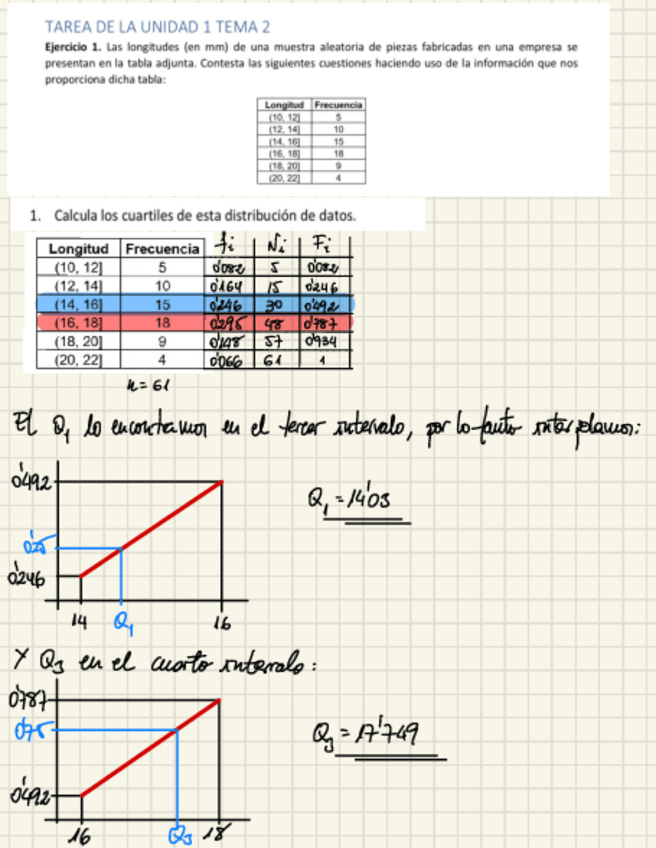 TAREA DE LA UNIDAD 1 TEMA 2
Ejercicio 1. Las longitudes (en mm) de una muestra aleatoria de piezas fabricadas en una empresa se
presentan en la tabla adjunta. Contesta las siguientes cuestiones haciendo uso de la información que nos
proporciona dicha tabla:
Longitud Frecuencia
(10, 12] 5
(12, 14] 10
(14, 16] 15
(16, 18] 18
(18, 20] 9
(20, 22] 4
1. Calcula los cuartiles de esta distribución de datos.
Longitud Frecuencia fi Ni Fi
(10, 12] 5 0'082 5 0'082
(12, 14] 10 0'164 15 0'246
(14, 16] 15 0'246 30 0'492
(16, 18] 18 0'295 48 0'787
(18, 20] 9 0'148 57 0'934
(20, 22] 4 0'066 61 1
n = 61
El Q1 lo encontramos en el tercer intervalo, por lo tanto interpolamos:
0'492
Q1 = 14'03
0'25
0'246
14 Q1 16
Y Q3 en el cuarto intervalo:
0'787
0'75
Q3 = 17'749
0'492
16 Q3 18